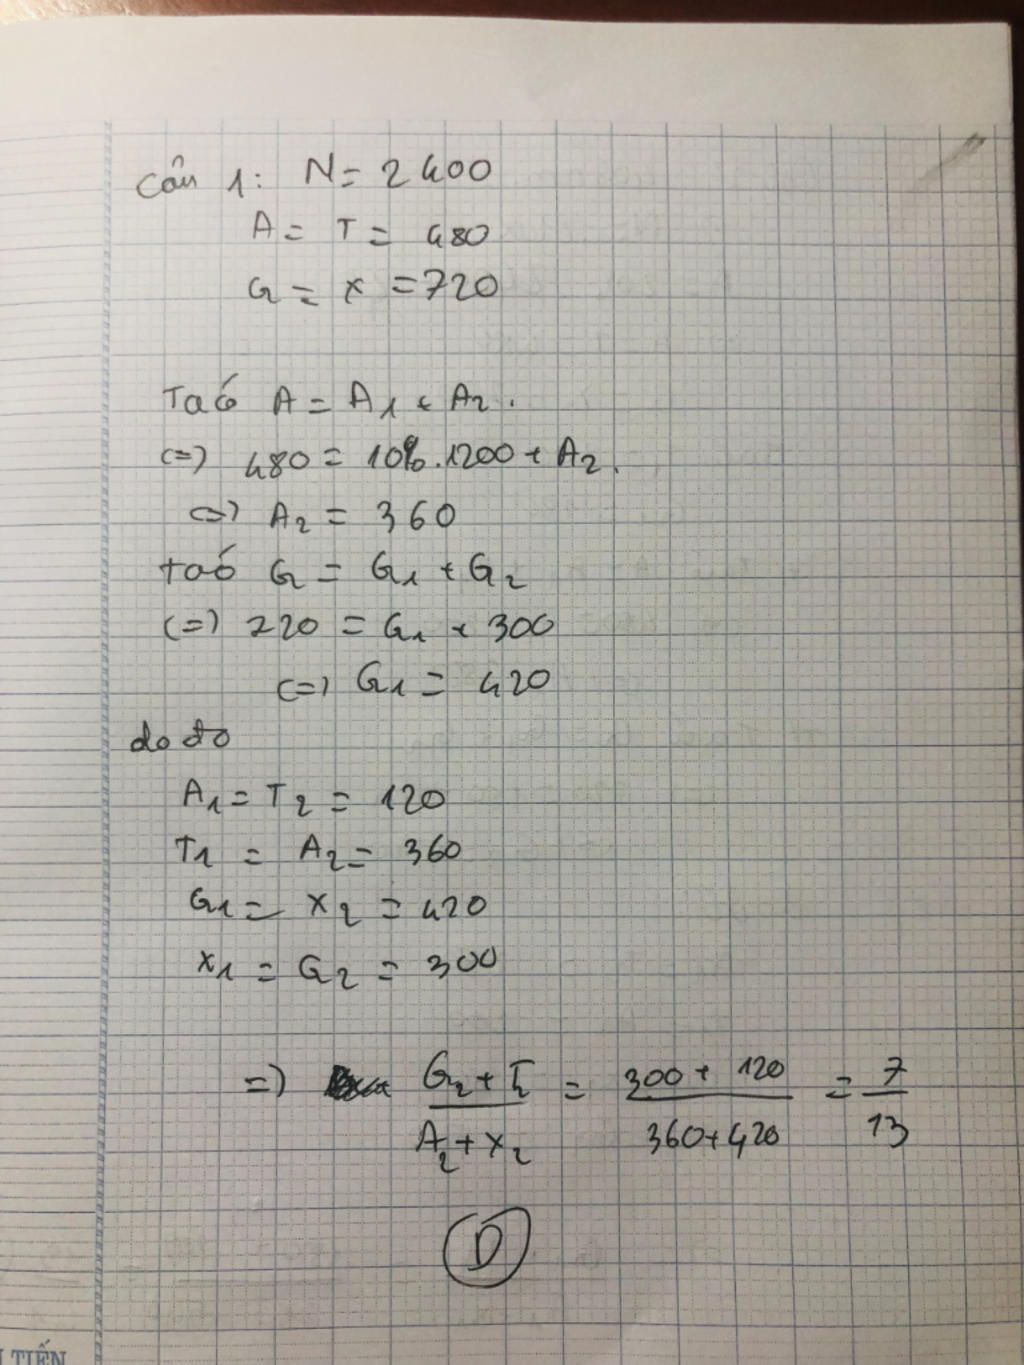 Câu 1: N = 2400
A = T = 480
G = X = 720
Ta có A = A1 + A2.
(=) 480 = 10%.1200 + A2.
(=) A2 = 360
ta có G = G1 + G2
(=) 720 = G1 + 300
(=) G1 = 420
do đó
A1 = T2 = 120
T1 = A2 = 360
G1 = X2 = 420
X1 = G2 = 300
=) G2 + T2 / A2 + X2 = 300 + 120 / 360 + 420 = 7 / 13
D
TIẾN